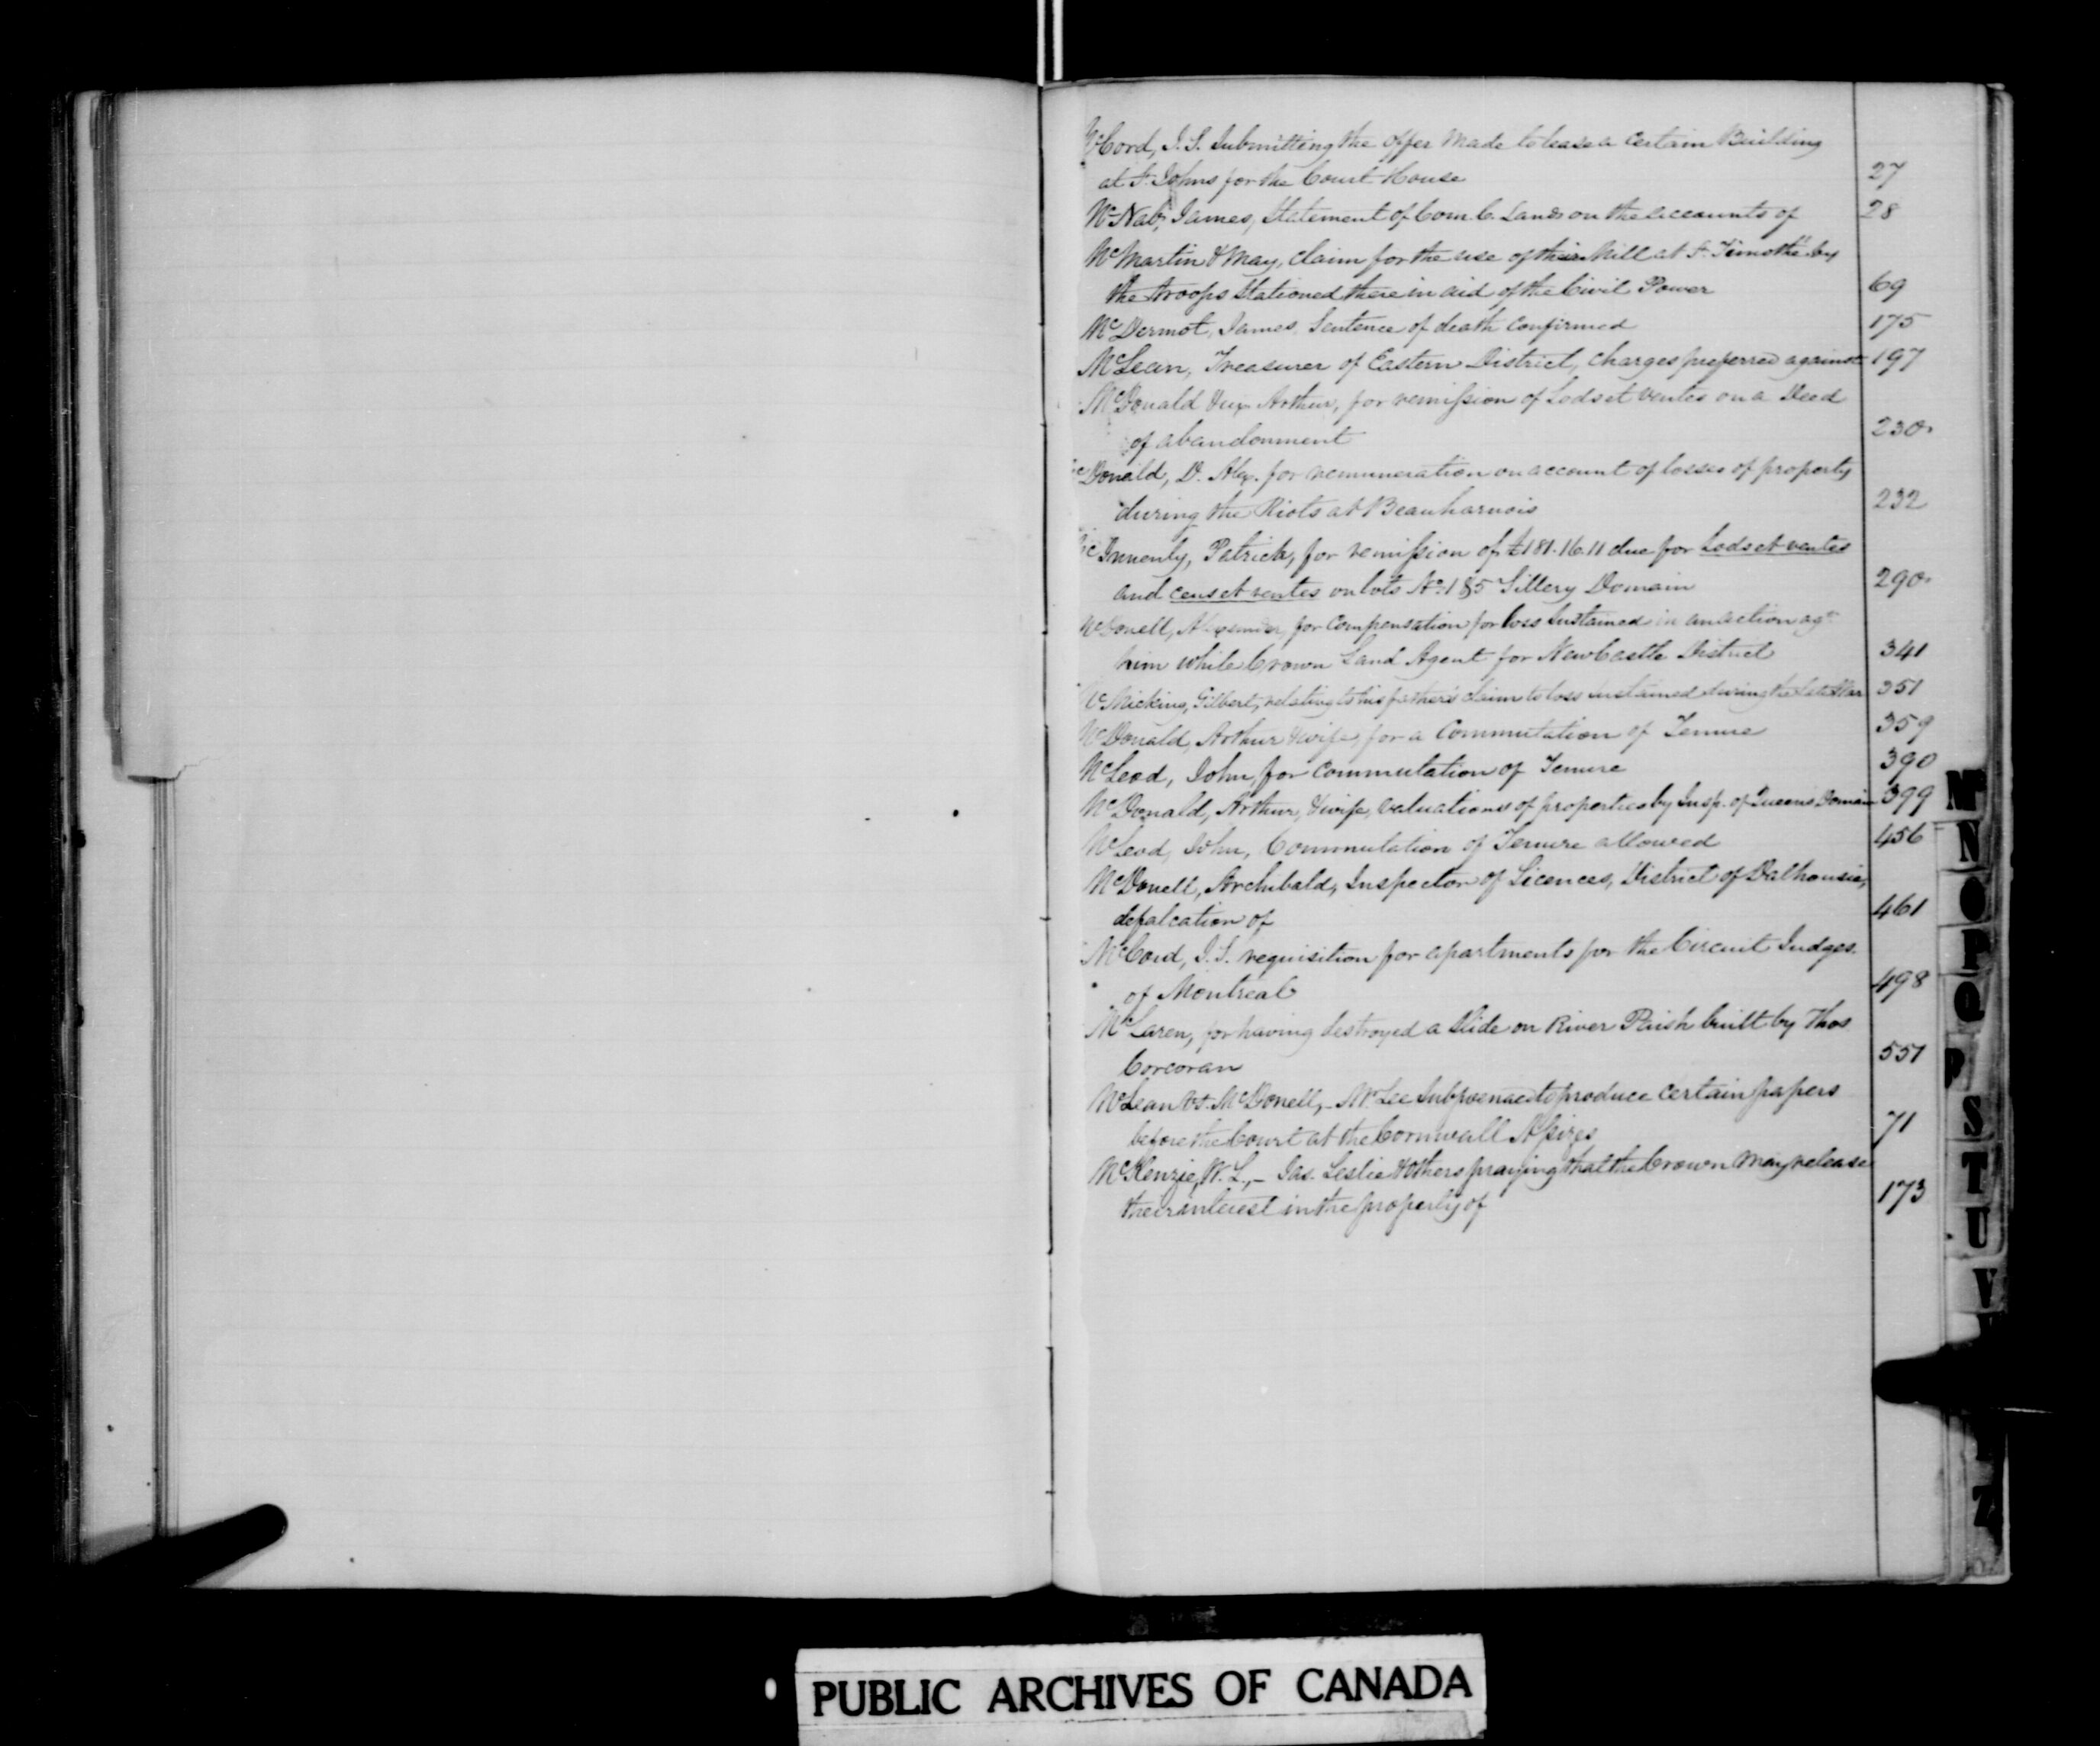 McCord, J. S. Submitting the offer made to lease a certain Building
at St. Johns for the Court House 27
McNab, James, Statement of Com. C. Lands on the accounts of 28
McMartin & May, claim for the use of their Mill at St. Timothé by
the troops stationed there in aid of the Civil Power 69
McDermot, James, Sentence of death confirmed 175
McLean, Treasurer of Eastern District, charges preferred against 197
McDonald & ux Arthur, for remission of Lods et ventes on a Deed
of abandonment 230
McDonald, D. Alex. for remuneration on account of losses of property
during the Riots at Beauharnois 232
Patrick, for remission of £181.16.11 due for Lods et ventes
and cens et rentes on lots No. 1 & 5 Sillery Domain 290
McDonell, Alexander, for compensation for loss sustained in an action agst
him while Crown Land Agent for Newcastle District 341
McMicking, Gilbert, relating to his father's claim to loss sustained during the late War 351
McDonald, Arthur & wife, for a Commutation of Tenure 359
McLeod, John, for commutation of Tenure 390
McDonald, Arthur, & wife, valuations of properties by Insp. of Queens Domain 399
McLeod, John, Commutation of Tenure allowed 456
McDonell, Archibald, Inspector of Licences, District of Dalhousie,
defalcation of 461
McCord, J. S. requisition for apartments for the Circuit Judges
of Montreal 498
McLaren, for having destroyed a slide on River built by Thos
Corcoran 551
McLean vs. McDonell, - Mr. Lee Subpoenaed to produce certain papers
before the Court at the Cornwall Assizes 71
McKenzie, W. L., - Jas. Leslie & others praying that the Crown may release
their interest in the property of 173
Mc
N
O
P
Q
S
T
U
V
Z
PUBLIC ARCHIVES OF CANADA